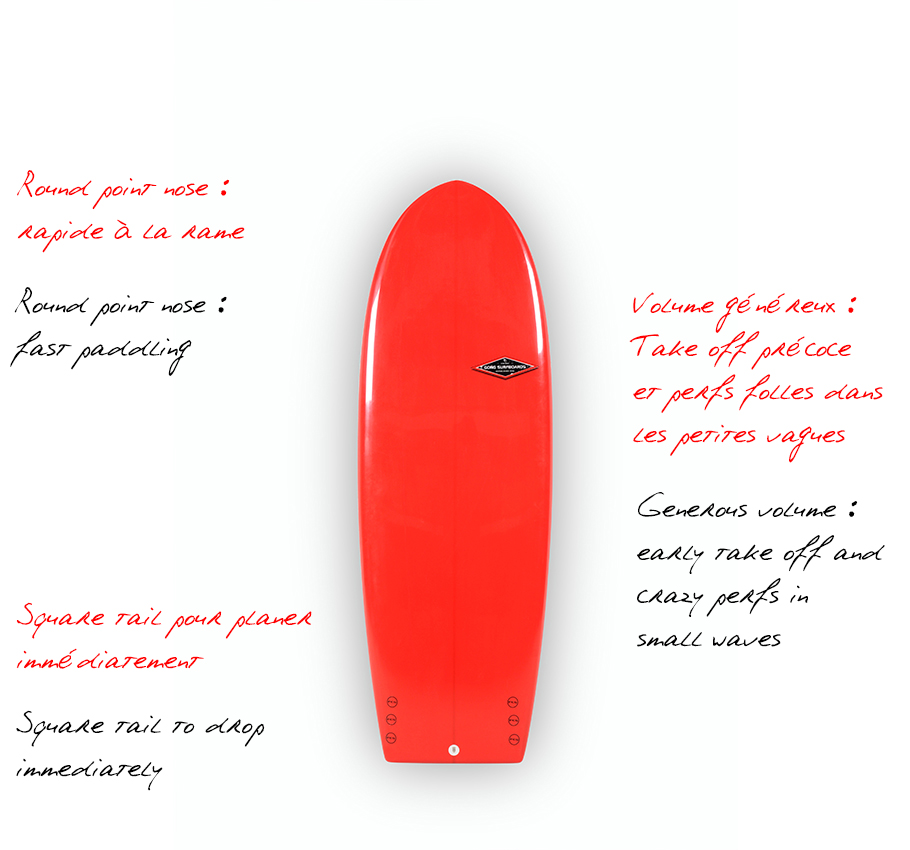 Round point nose :
rapide à la rame
Round point nose :
fast paddling
Volume généreux :
Take off précoce
et perfs folles dans
les petites vagues
GONG SURFBOARDS
Generous volume :
early take off and
crazy perfs in
small waves
Square tail pour planer
immédiatement
Square tail to drop
immediately